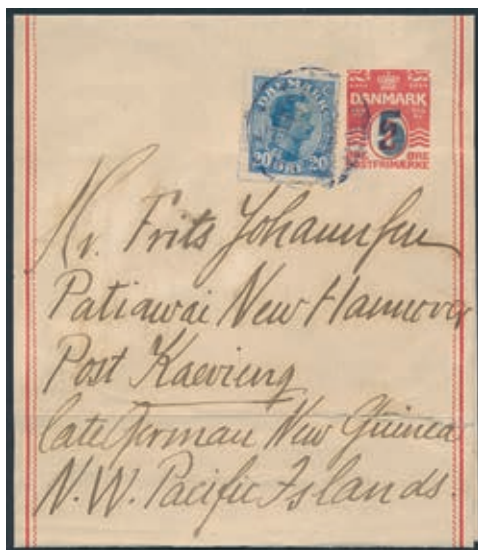 DANMARK
20 ØRE 20
DANMARK
5
ØRE
POSTFRIMÆRKE
Hr. Frits Johannsen
Patiawai New Hannover
Post Kaevieng
late German New Guinea
N.W. Pacific Islands.